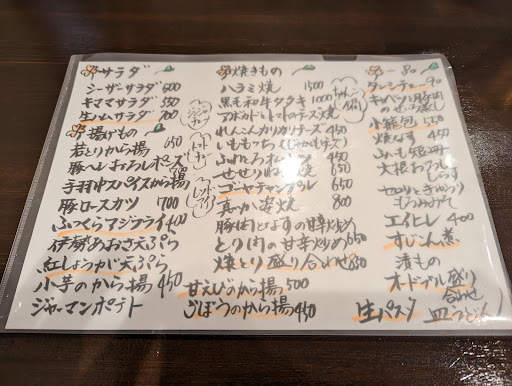 サラダ
シーザーサラダ 600
キママサラダ 550
生ハムサラダ 700
揚げもの
若とりから揚 650
豚ヘレおろしポンズ
手羽中スパイスから揚
豚ロースカツ 700
ふっくらアジフライ 400
伊勢あおさ天ぷら
紅しょうが天ぷら
小芋のから揚 450
ジャーマンポテト
焼きもの
ハラミ焼 1500
黒毛和牛タタキ 1000
アボカドとトマトのチーズ焼
れんこんカリカリチーズ 450
いももち(じゃがもチーズ)
450
せせりねぎ焼 650
ゴーヤチャンプル 650
真いか姿焼 800
豚肉となすの甘辛炒め
とり肉の甘辛炒め 650
焼とり盛り合わせ 830
甘えびのから揚 500
ごぼうのから揚 450
一品
90
キャベツと豚肉の
小籠包 550
焼なす 450
大根おろし
しらす
セロリときゅうり
エイヒレ 400
すじこん煮
漬もの
オードブル盛り
合わせ
生パスタ